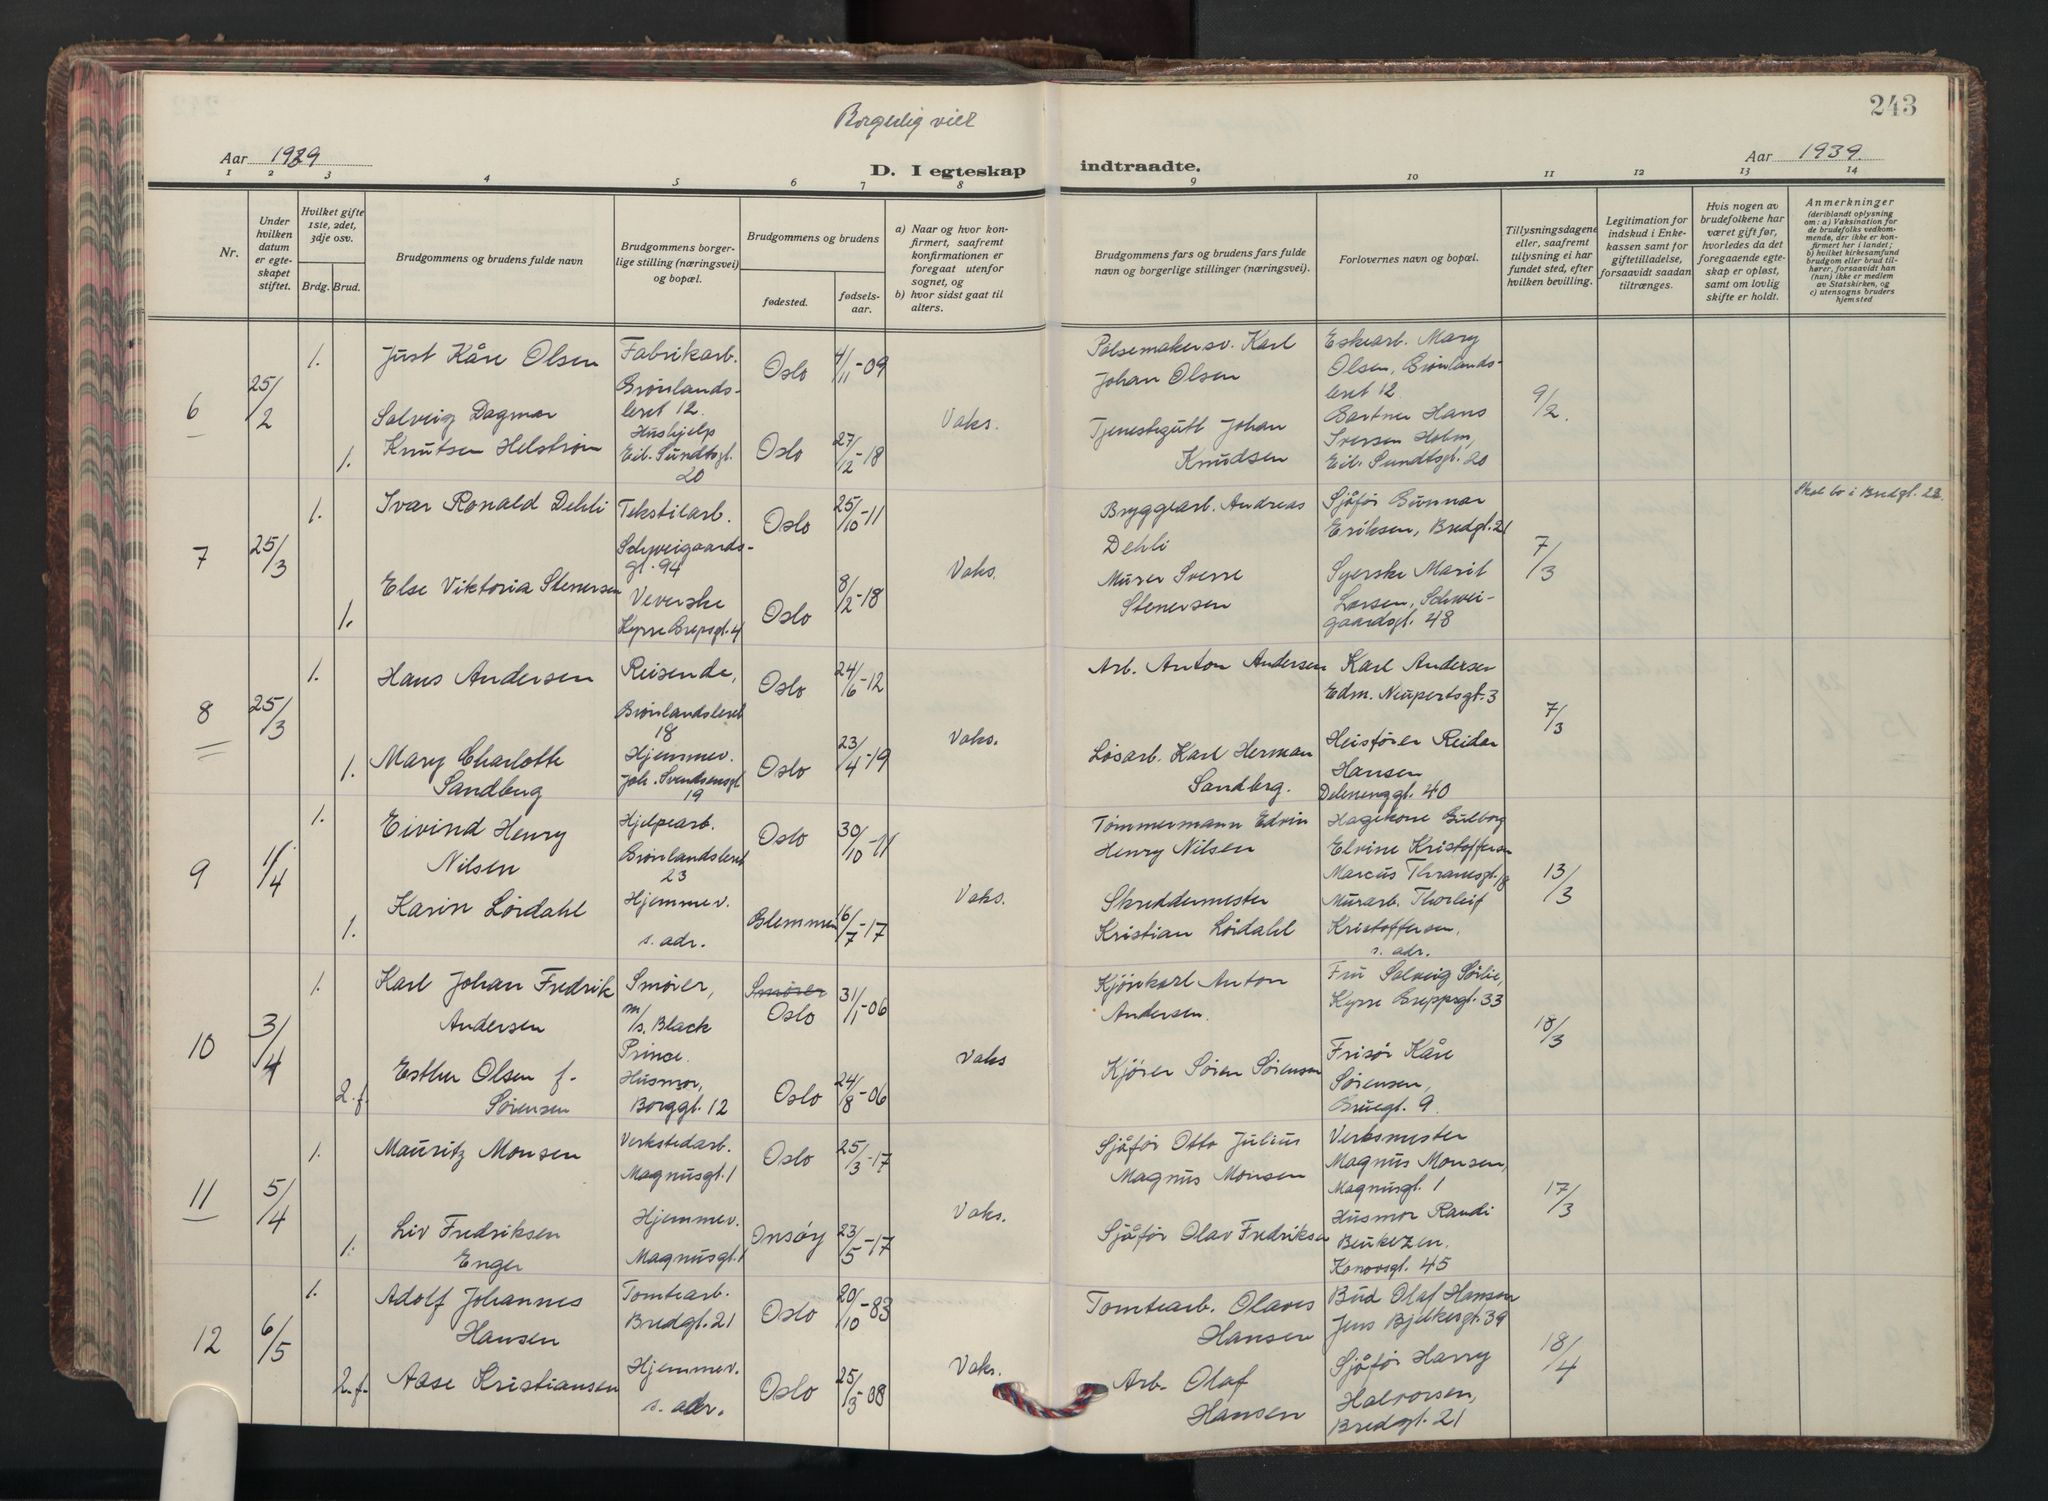 243
Borgerlig viet
Aar 1939
D. I egteskap indtraadte.
Aar 1939.
1 2 3 4 5 6 7 8 9 10 11 12 13 14
Nr.
Under hvilken datum er egteskapet stiftet.
Hvilket gifte 1ste, 2det, 3dje osv.
Brdg. Brud.
Brudgommens og brudens fulde navn
Brudgommens borgerlige stilling (næringsvei) og bopæl.
Brudgommens og brudens
fødested.
fødselsaar.
a) Naar og hvor konfirmert, saafremt konfirmationen er foregaat utenfor sognet, og
b) hvor sidst gaat til alters.
Brudgommens fars og brudens fars fulde navn og borgerlige stillinger (næringsvei).
Forlovernes navn og bopæl.
Tillysningsdagene eller, saafremt tillysning ei har fundet sted, efter hvilken bevilling.
Legitimation for indskud i Enkekassen samt for giftetilladelse, forsaavidt saadan tiltrænges.
Hvis nogen av brudefolkene har været gift før, hvorledes da det foregaaende egteskap er opløst, samt om lovlig skifte er holdt.
Anmerkninger
(deriblandt oplysning om: a) Vaksination for de brudefolks vedkommende, der ikke er konfirmert her i landet; b) hvilket kirkesamfund brudgom eller brud tilhører, forsaavidt han (hun) ikke er medlem av Statskirken, og c) utensogns bruders hjemsted
6
25/2
1.
Just Kåre Olsen
Fabrikarb.
Grønlands-
leret 12.
Oslo
4/11-09
Pølsemakersv. Karl
Johan Olsen
Eskearb. Mary
Olsen, Grønlands-
leret 12.
9/2.
Solveig Dagmar
Knutsen Helstrøm
1.
Hushjelp
Eil. Sundtsgt.
20
Oslo
27/12-18
Vaks.
Tjenestegutt Johan
Knudsen
Gartner Hans
Iversen Holm,
Eil. Sundtsgt. 20
7
25/3
1.
Ivar Ronald Dehli
Tekstilarb.
Schweigaards-
gt. 94
Oslo
25/10-11
Bryggearb. Andreas
Dehli
Sjåfør Gunnar
Eriksen, Bredgt. 21
7/3
Skal bo i Bredgt. 22.
1.
Else Viktoria Stenersen
Veverske
Kyrre Grepsgt. 4
Oslo
8/2-18
Vaks.
Murer Sverre
Stenersen
Syerske Marit
Larsen, Schwei-
gaardsgt. 48
8
25/3
1.
Hans Andersen
Reisende,
Grønlandsleret
18
Oslo
24/6-12
Arb. Anton Andersen
Karl Andersen
Edm. Neupertsgt. 3
7/3
1.
Mary Charlotte
Sandberg
Hjemmev.
Joh. Svendsensgt
19
Oslo
23/4-19
Vaks.
Løsarb. Karl Herman
Sandberg.
Heisfører Reidar
Hansen
Delenenggt. 40
9
1/4
1.
Eivind Henry
Nilsen
Hjelpearb.
Grønlandsleret
23
Oslo
30/10-11
Tømmermann Edvin
Henry Nilsen
Hagekone Gulborg
Elvine Kristoffersen
Marcus Thranesgt. 18
13/3
1.
Karin Lørdahl
Hjemmev.
s. adr.
Glemmen
16/7-17
Vaks.
Skreddermester
Kristian Lørdahl
Murarb. Thorleif
Kristoffersen,
s. adr.
10
3/4
1.
Karl Johan Fredrik
Andersen
Smører,
m/s. Black
Prince.
Smører
Oslo
31/1-06
Kjørekarl Anton
Andersen.
Fru Solveig Sørlie,
Kyrre Greppsgt. 33
18/3
2. f.
Esther Olsen f.
Sørensen
Husmor,
Borggt. 12
Oslo
24/8-06
Vaks
Kjører Søren Sørensen
Frisør Kåre
Sørensen,
Bruegt. 9.
11
5/4
1.
Mauritz Monsen
Verkstedarb.
Magnusgt. 1
Oslo
25/3-17
Sjåfør Otto Julius
Magnus Monsen
Verksmester
Magnus Monsen,
Magnusgt. 1
17/3
1.
Liv Fredriksen
Enger
Hjemmev.
Magnusgt. 1
Onsøy
23/5-17
Vaks.
Sjåfør Olav Fredriksen
Husmor Randi
Beukezen,
Konowsgt. 45
12
6/5
1.
Adolf Johannes
Hansen
Tomtearb.
Bredgt. 21
Oslo
20/10-83
Tomtearb. Olaves
Hansen
Bud Olaf Hansen
Jens Bjelkesgt. 39
18/4
2. f.
Aase Kristiansen
Hjemmev.
s. adr.
Oslo
25/3-08
Vaks.
Arb. Olaf
Hansen
Sjåfør Harry
Halvorsen,
Bredgt. 21